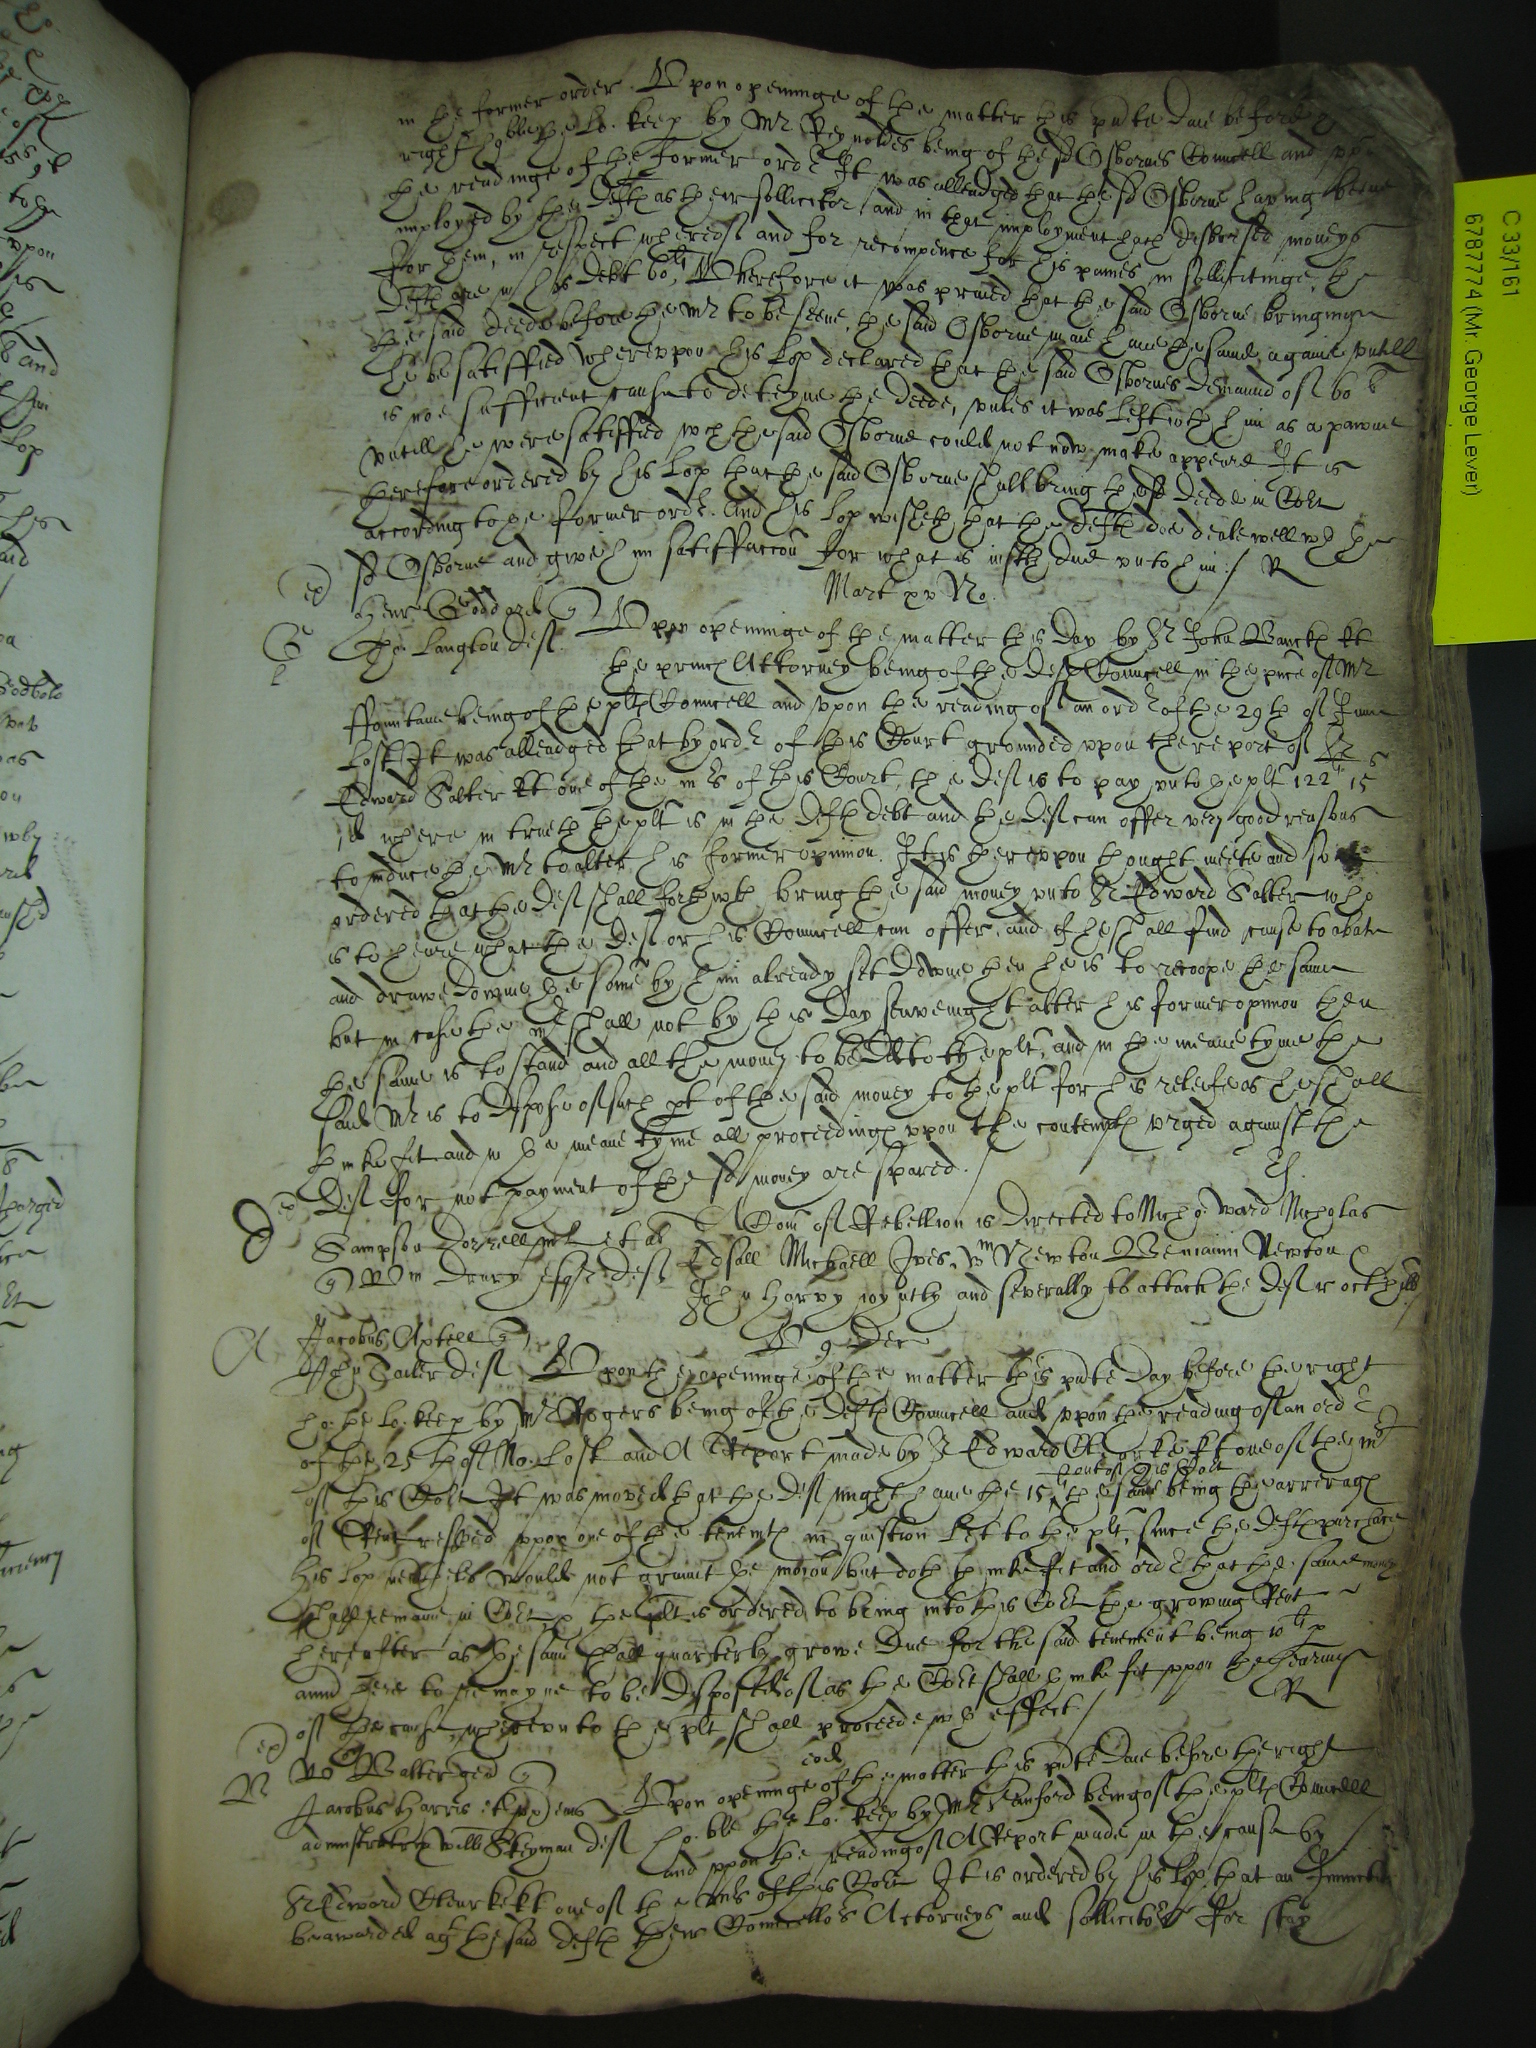 in the former order. Upon openinge of the matter this pnte Daie before the
right ho:ble the Lo. keep by Mr Reynoldes being of the sd Osbornes Councell and upon
the readinge of the former ordr It was alleadged that the sd Osborne having beene
imployed by the Defts as their sollicitor, and in that imployment hath disbursed moneys
for them, in respect whereof and for recompence for his paines in sollicitinge, the
Defts are in his debt 60li, Wherefore it was praied that the said Osborne bringinge
the said deede before the Mr to be seene, the said Osborne maie have the same againe untill
he be satisffied whereupon his Lop declared that the said Osbornes demaund of 60li
is noe sufficient cause to deteyne the deede, unles it was left with him as a pawne
untill he were satisffied wch the said Osborne could not now make appeare It is
therefore ordered by his Lop that the said Osborne shall bring the sd Deede in Cort
according to the former ordr. And his Lop wisheth that the Defts doe deale well wth the
sd Osborne and give him satisffaccon for what is iustly due unto him / R
Mart xv No.
Henr Goddard q
Tho. Langton Deft. Upon openinge of the matter this Day by Sr John Banckes kt
the princes Attorney being of the Defts Councell in the pnce of Mr
Fountaine being of the plts Councell and upon the reading of an ordr of the 29th of June
Last It was alleadged that by ordr of this Court grounded upon the report of Sr
Edward Salter kt one of the mrs of this Court, the Deft is to pay unto the plt 122li 15s
where in trueth the plt is in the Defts debt and the Deft can offer very good reasons
to induce the Mr to alter his former opinion. It is thereupon thought meete and soe
ordered that the Deft shall forthwth bring the said money unto Sr Edward Salter who
is to heare what the Deft or his Councell can offer, and if he shall find cause to abate
and drawe downe the some by him already set downe then he is to recoope the same
but in case the mr shall not by this Day sevenight alter his former opinion then
the same is to stand and all the money to be Dd to the plt, and in the meane tyme the
said Mr is to dispose of such pt of the said money to the plt for his releife as he shall
thinke fit and in the meane tyme all proceedings upon the contempts urged against the
Deft for not payment of the sd money are spared. /
Sampson Dorrell mil et al
q Wm Drury Esqr Deft
A Com of Rebellion is directed to Micho Ward Nicholas
Edsall Michaell Ives, Wm Newton Beniamin Newton
John Harvy ioyntly and severally to attach the Deft r octbis
Jacobus Axtell q
John Sailer Deft
Upon the openinge of the matter this pnte Day before the right
ho. the Lo. keep by Mr Rogers being of the Defts Councell and upon the reading of an ordr
of the 25th of No. Last and A Report made by Sr Edward Clerke kt one of the mrs
of this Cort It was moved that the Deft might have the 15li out of this Cort the same being the arrerages
of Rent reserved upon one of the tenemts in question let to the plt, since the Defts purchase
his Lop would not graunt the mocion but doth thinke fit and ordr that the same money
shall remaine in Cort the plt is ordered to bring into this Cort the growing Rent
hereafter as the same shall quarterly growe due for the said tenement being 10li p
ann there to remayne to be disposed of as the Cort shall thinke fit upon the hearing
of the cause, whereunto the plt shall proceede wth effect. / R
Ro Walter gen q
Jacobus Harris
administratrix Willi Skeyman Deft
eod
Upon openinge of the matter this pnte Daie before the right
ho. ble the Lo. keep by Mr being of the plts Councell
and upon the reading of A Report made in the cause by
Sr Edward Clerke kt one of the mrs of this Cort It is ordered by his Lop that an Iniunction
be awarded agt the said Defts their Councellors Attorneys and sollicitors for stay
C 33/161
67877774 (Mr. George Lever)